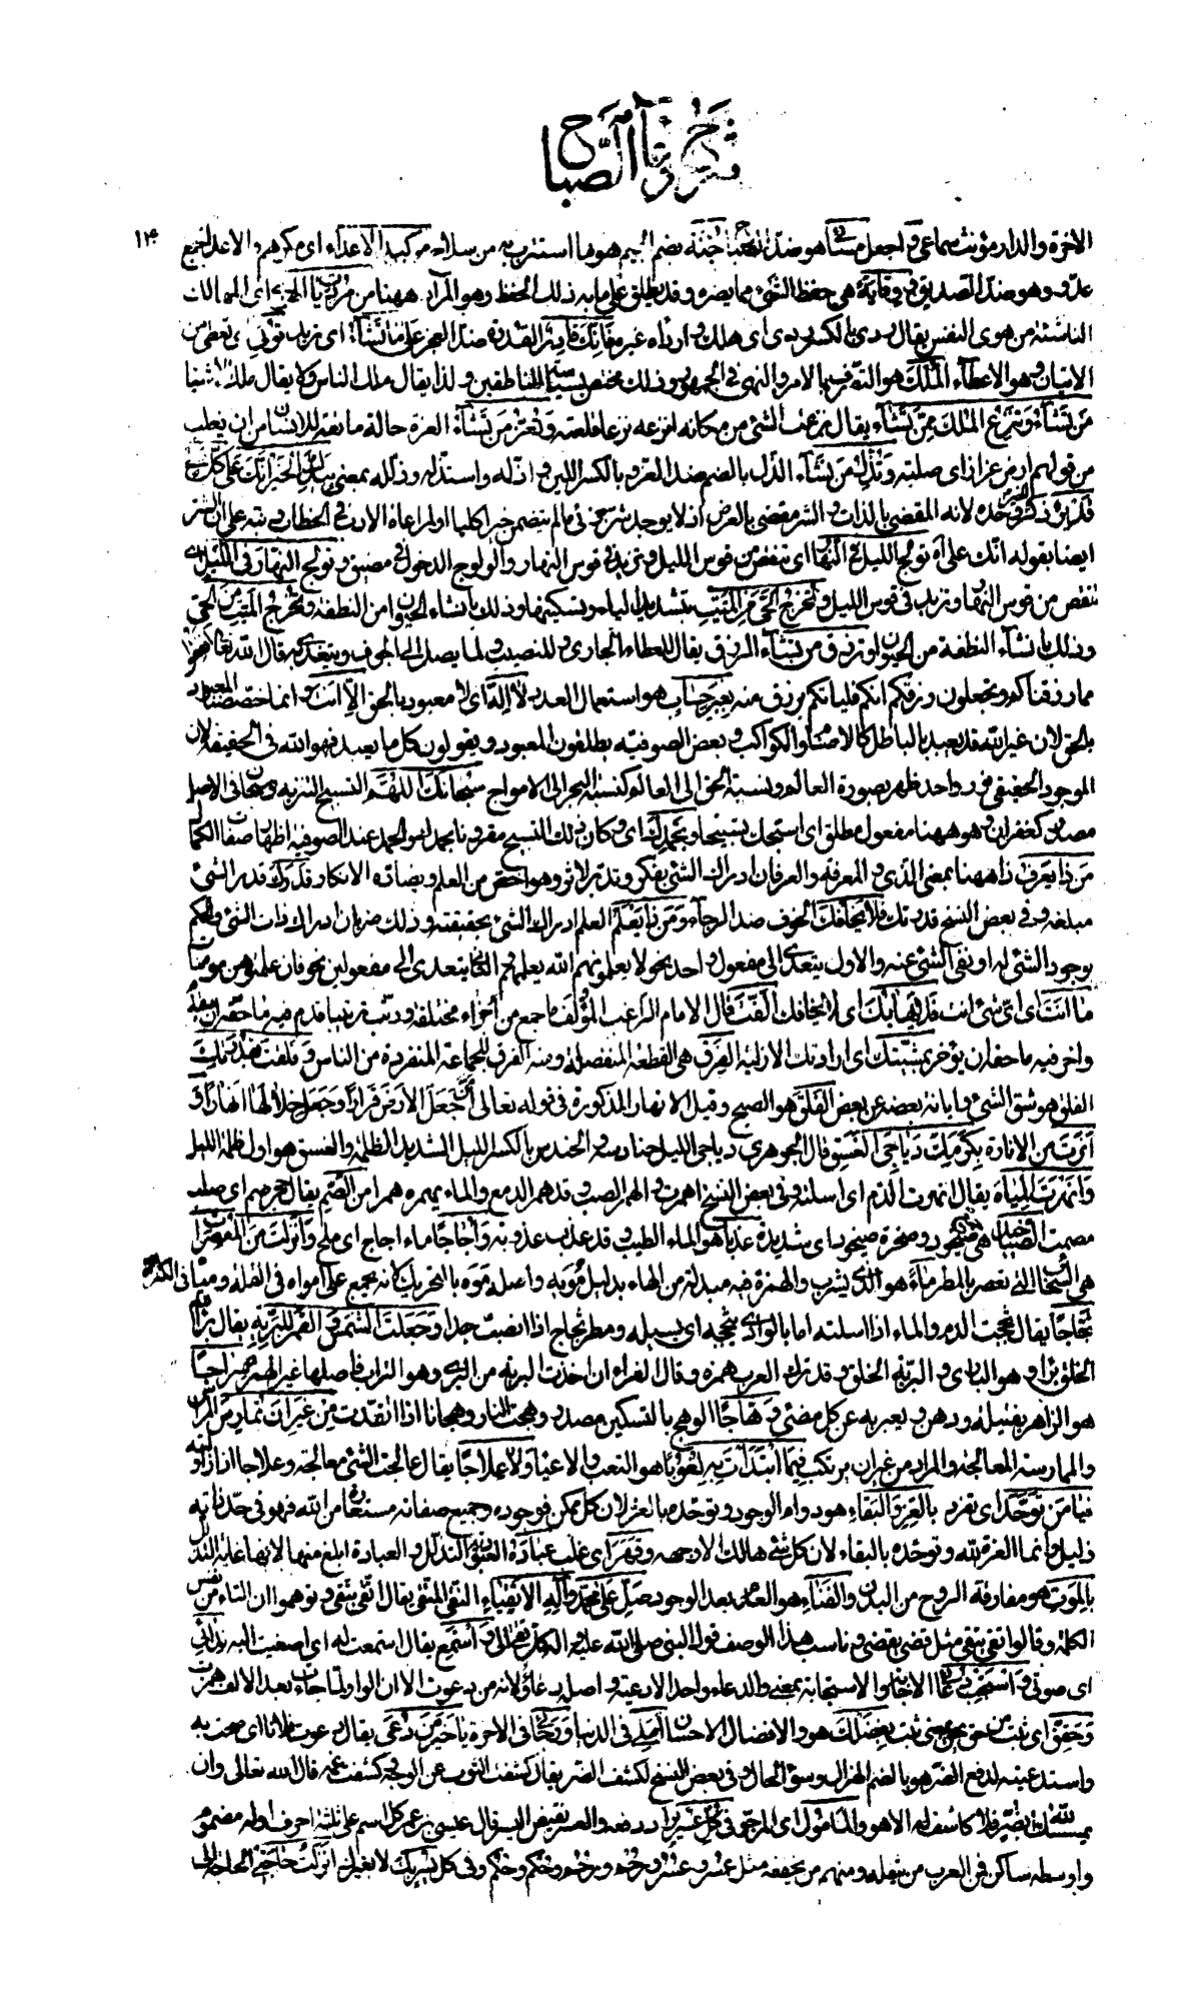 شرح دعاء الصباح
١٣
الاخرة والدار مؤنث سماعى و اجعل مسائى هو ضد الصباح جنة بضم الجيم هو ما استترت به من سلاح من كيد الاعداء اى مكرهم والاعداء جمع
عدو وهو ضد الصديق و وقاية هى حفظ الشئ مما يضره وقد يطلق على ما به ذلك الحفظ وهو المراد ههنا من مرديات الهوى اى المهالك
الناشئة من هوى النفس يقال ردى بالكسر يردى اى هلك و ارداه غيره فانك قادر القدرة ضد العجز على ما تشاء اى تريد تؤتى
الايتاء و هو الاعطاء الملك هو التصرف بالامر والنهى فى الجمهور و ذلك مختص بسياسة الناطقين و لذا يقال ملك الناس ولا يقال ملك الاشياء
من تشاء و تنزع الملك ممن تشاء يقال نزعت الشئ من مكانه انزعه نزعا قلعته و تعز من تشاء العزة حالة مانعة للانسان من ان يغلب
من قولهم ارض عزاز اى صلبة و تذل من تشاء الذل بالضم ضد العز و بالكسر اللين و اذله و استذله و ذلله بمعنى بيدك الخير انك على كل شئ
قدير ذكر الخير وحده لانه المقضى بالذات و الشر مقضى بالعرض اذ لا يوجد شر جزئى ما لم يتضمن خيرا كليا او لمراعاة الادب فى الخطاب و نبه على ان الشر
ايضا بقوله انك على آه تولج الليل فى النهار اى تنقص من قوس الليل و تزيد فى قوس النهار والولوج الدخول فى مضيق و تولج النهار فى الليل اى
تنقص من قوس النهار و تزيد فى قوس الليل و تخرج الحى من الميت بتشديد الياء و تسكينها و ذلك بانشاء الحيوان من النطفة و تخرج الميت من الحى
و ذلك بانشاء النطفة من الحيوان و ترزق من تشاء الرزق يقال للعطاء الجارى و للنصيب و لما يصل الى الجوف و يتغذى به قال الله تعالى
مما رزقناكم و تجعلون رزقكم انكم فلياتكم برزق منه بغير حساب هو استعمال العدد لا اله اى لا معبود بالحق الا انت و انما خصصنا المعبود
بالحق لان غير الله قد يعبد بالباطل كالاصنام و الكواكب و بعض الصوفية يطلقون المعبود و يقولون كل ما يعبد فهو الله فى الحقيقة لان
الموجود الحقيقى واحد ظهر بصورة العالم و نسبة الحق الى العالم كنسبة البحر الى الامواج سبحانك اللهم التسبيح التنزيه و سبحان فى الاصل
مصدر كغفران و هو ههنا مفعول مطلق اى اسبحك تسبيحا و بحمدك اى و كان ذلك التسبيح مقرونا بحمدك و الحمد عند الصوفية اظهار صفات الكمال
من ذا يعرف ذا ههنا بمعنى الذى و المعرفة و العرفان ادراك الشئ بفكر و تدبر لاثره و هو اخص من العلم و يضاده الانكار قدرك قدر الشئ
مبلغه و فى بعض النسخ قدرتك فلا يخافك الخوف ضد الرجاء و من ذا يعلم العلم ادراك الشئ بحقيقته و ذلك ضربان ادراك ذات الشئ و الحكم
بوجود الشئ له او نفى الشئ عنه و الاول يتعدى الى مفعول واحد نحو لا تعلمونهم الله يعلمهم و الثانى يتعدى الى مفعولين نحو فان علمتموهن مؤمنات
ما انت اى اى شئ انت فلا يهابك اى لا يخافك الفت قال الامام الراغب المؤلف ما جمع من اجزاء مختلفة و رتب ترتيبا قدم فيه ما حقه ان يقدم
و اخر فيه ما حقه ان يؤخر بمشيتك اى ارادتك الازلية الفرق هى القطعة المنفصلة و منه الفرق للجماعة المنفردة من الناس و فلقت بقدرتك
الفلق هو شق الشئ و ابانة بعضه عن بعض الفلق هو الصبح و قيل الانهار المذكورة فى قوله تعالى امن جعل الارض قرارا و جعل خلالها انهارا و
انرت من الانارة بكرمك دياجى الغسق قال الجوهرى دياجى الليل حنادسه و الحندس بالكسر الليل الشديد الظلمة و الغسق هو اول ظلمة الليل
و انهرت المياه يقال انهرت الدم اى اسلته و فى بعض النسخ اهمرت و الهمر الصب و قد همر الدمع و الماء يهمر همرا من الصم يقال حجر صم اى صلب
مصمت الصياخيد هى صيخود و صخرة صيخود اى شديدة عذبا هو الماء الطيب و قد عذب عذوبة و اجاجا ماء اجاج اى ملح و انزلت من المعصرات
هى السحاب التى تعصر بالمطر ماء هو الذى يشرب و الهمزة فيه مبدلة من الهاء بدليل مويه و اصله موه بالتحريك لانه يجمع على امواه فى القلة و مياه فى الكثرة
ثجاجا يقال ثججت الدم و الماء اذا اسلته اما بالوادى ثجيجه اى بسيله و مطر ثجاج اذا انصبت جدا و جعلت الشمس و القمر للبرية يقال برأ الله
الخلق برأ و هو البارى و البرية الخلق و قد ترك العرب همزه و قال الفراء ان اخذت البرية من البرى و هو التراب فاصلها غير الهمز سراجا
هو الزاهر بفتيلة و دهن و يعبر به عن كل مضئ وهاجا الوهج بالتسكين مصدر وهجت النار وهجانا اذا اتقدت من غير ان تمارس المراس
و الممارسة المعالجة و المراد من غير ان يرتكب فيما ابتدأت به لغوبا هو التعب و الاعياء و لا علاجا يقال عالجت الشئ معالجة و علاجا اذا زاولته
فيا من توحد اى تفرد بالعز و البقاء هو دوام الوجود و توحده بالعز لان كل ممكن فوجوده و جميع صفاته مستفاد من الله فهو فى حد ذاته
ذليل و انما العزة لله و توحده بالبقاء لان كل شئ هالك الا وجهه و قهر اى غلب عباده العبودية التذلل و العبادة ابلغ منها لانها غاية التذلل
بالموت هو مفارقة الروح من البدن و الفناء هو العدم بعد الوجود صل على محمد و آله الاتقياء التقى المتقى يقال اتقى يتقى و توهموا ان التاء من نفس
الكلمة و قالوا تقى يتقى مثل قضى يقضى و ناسب هذا الوصف قول النبى صلى الله عليه و آله كل تقى الى و استمع يقال استمعت له اى اصغيت اليه ندائى
اى صوتى و استجب دعائى الاجابة و الاستجابة بمعنى و الدعاء واحد الادعية و اصله دعاو لانه من دعوت الا ان الواو لما جاءت بعد الالف همزت
و حقق اى ثبت من حق يحق بمعنى ثبت بفضلك هو و الافضال الاحسان املى فى الدنيا و رجائى فى الاخرة يا خير من دعى يقال دعوت فلانا اى صحت به
و استدعيته لدفع الضر هو بالضم الهزال و سوء الحال و فى بعض النسخ لكشف الضر يقال كشفت الثوب عن الوجه و كشفت غمه قال الله تعالى و ان
يمسسك الله بضر فلا كاشف له الا هو و المامول اى المرجو فى كل عسير يراد دفعه و العسر نقيض اليسر قال عيسى بن عمر كل اسم على ثلثة احرف اوله مضموم
و اوسطه ساكن فمن العرب من يثقله و منهم من يخففه مثل عسر و عسر و رحم و رحم و حكم و حكم و فى كل يسر بك لا بغيرك انزلت حاجتى الحاجة الى